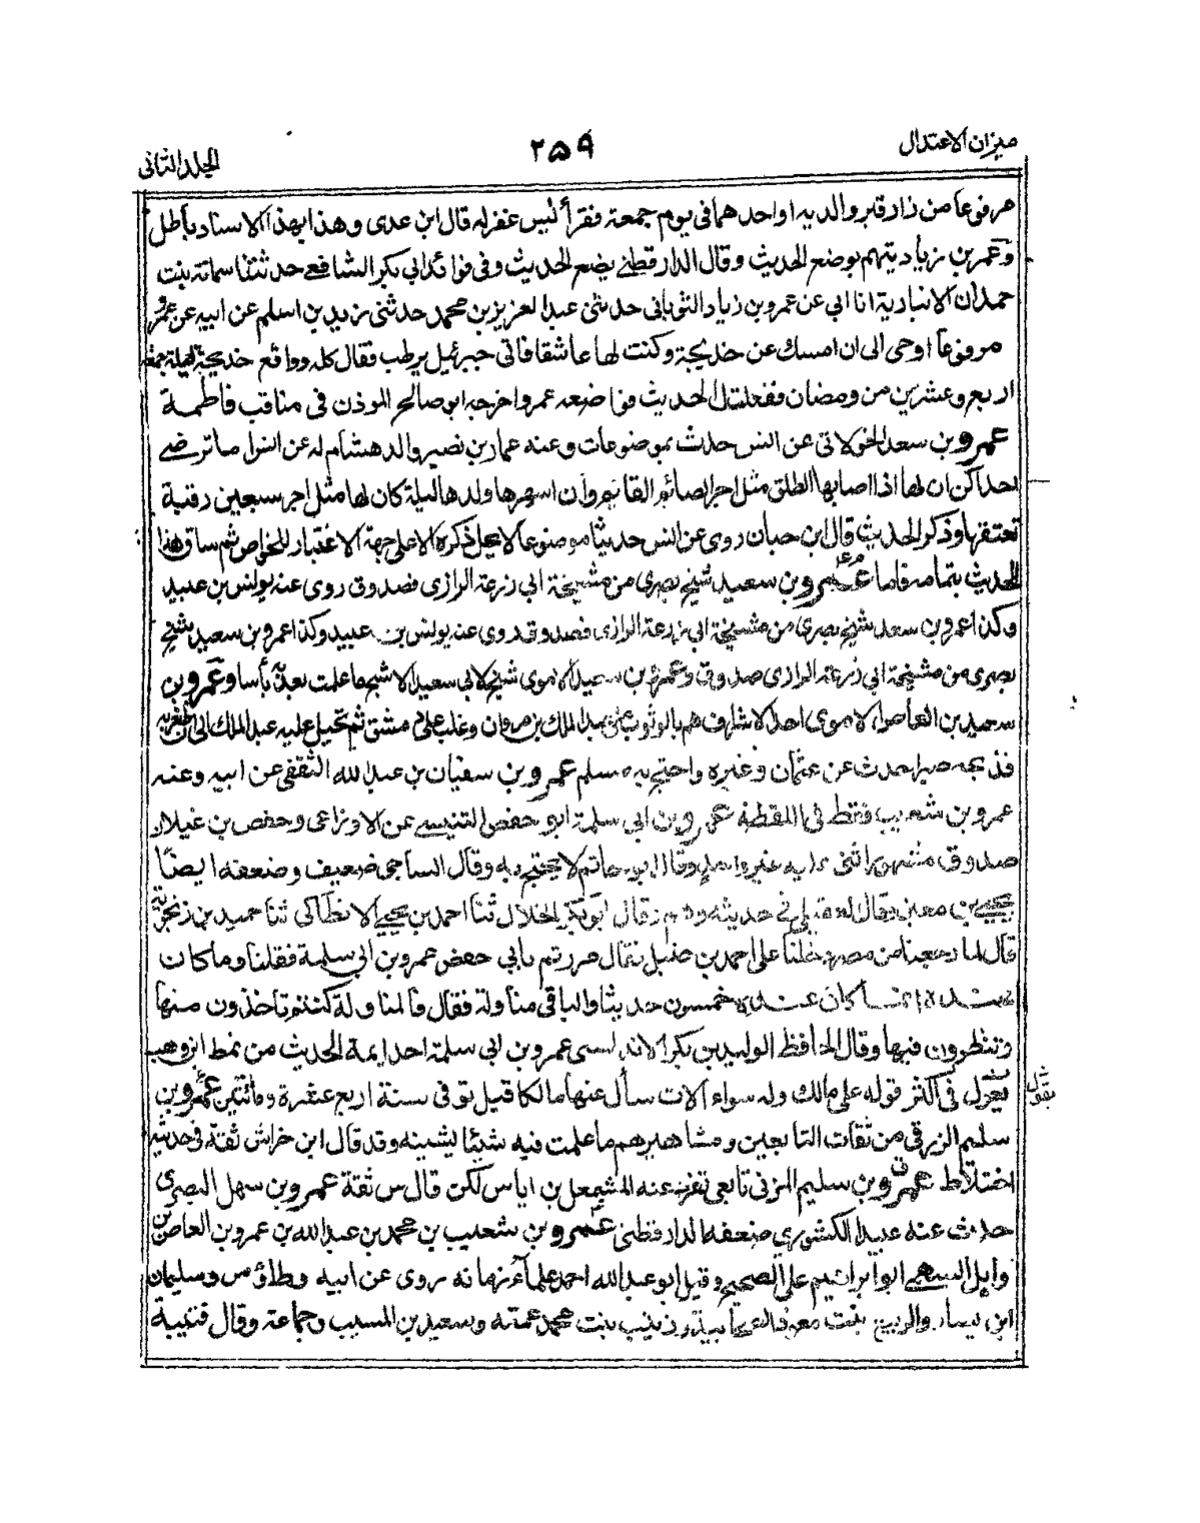 ميزان الاعتدال
٢٥٩
الجلد الثانى
مرفوعا من زار قبر والديه او احدهما فى يوم جمعة فقرأ يٰس غفر له قال ابن عدى وهذا بهذا الاسناد باطل
وعمرو بن زياد يتهم بوضع الحديث وقال الدارقطنى يضع الحديث وفى فوائد ابى بكر الشافعى حدثتنا سمانة بنت
حمدان الانبارية انا ابى عن عمرو بن زياد الثوبانى حدثنى عبد العزيز بن محمد حدثنى زيد بن اسلم عن ابيه عن عمر
مرفوعا اوحى الى ان امسك عن خديجة وكنت لها عاشقا فاتى جبرئيل برطب فقال كله وواقع خديجة ليلة جمعة
اربع وعشرين من رمضان ففعلت الحديث فوا ضعه عمرو اخرجه ابو صالح الموذن فى مناقب فاطمة
عمرو بن سعد الخولانى عن انس حدث بموضوعات وعنه عمار بن نصير والد هشام له عن انس اما ترضى
احداكن ان لها اذا اصابها الطلق مثل اجر الصائم القائم وان اسهرها ولدها ليلة كان لها مثل اجر سبعين رقبة
تعتقها وذكر الحديث قال ابن حبان روى عن انس حديثا موضوعا لا يحل ذكره الا على جهة الاعتبار للخواص ثم ساق هذا
الحديث بتمامه فاما عمرو بن سعيد شيخ بصرى من مشيخة ابى زرعة الرازى فصدوق روى عنه يونس بن عبيد
وكذا عمرو بن سعد شيخ بصرى من مشيخة ابى زرعة الرازى فصدوق وروى عنه يونس بن عبيد وكذا عمرو بن سعيد شيخ
بصرى من مشيخة ابى زرعة الرازى صدوق وعمرو بن سعيد الاموى شيخ لابى سعيد الاشج ما علمت بعد به بأسا وعمرو بن
سعيد بن العاص الاموى احد الاشراف هم بالوثوب على عبد الملك بن مروان وغلب على دمشق ثم تحيل عليه عبد الملك الى ان ظفر به
فذبحه صبرا حدث عن عثمان وغيره واحتج به مسلم عمرو بن سفيان بن عبد الله الثقفى عن ابيه وعنه
عمرو بن شعيب فقط فى اللقطة عمرو بن ابى سلمة ابو حفص التنيسى عن الاوزاعى وحفص بن غيلان
صدوق مشهور اثنى عليه غير واحد وقال ابو حاتم لا يحتج به وقال الساجى ضعيف وضعفه ايضًا
يحيى بن معين وقال العقيلى فى حديثه وهم وقال ابو بكر الخلال ثنا احمد بن يحيى الانطاكى ثنا حميد بن زنجويه
قال لما رجعنا من مصر دخلنا على احمد بن حنبل فقال مررتم بابى حفص عمرو بن ابى سلمة فقلنا وما كان
عنده انما كان عنده خمسون حديثا والباقى مناولة فقال فالمناولة كنتم تاخذون منها
وتنظرون فيها وقال الحافظ الوليد بن بكر الاندلسى عمرو بن ابى سلمة احد ايمة الحديث من نمط ابن وهب
يقول فى اكثر قوله على مالك وله سوالات سأل عنها مالكا قيل توفى سنة اربع عشرة ومائتين عمرو بن
سليم الزرقى من ثقات التابعين ومشاهيرهم ما علمت فيه شيئا يشينه وقد قال ابن خراش ثقة فى حديثه
اختلاط عمرو بن سليم المزنى تابعى تفرد عنه المشمعل بن اياس لكن قال س ثقة عمرو بن سهل البصرى
حدث عنه عبيد الكشورى ضعفه الدارقطنى عمرو بن شعيب بن محمد بن عبد الله بن عمرو بن العاص بن
وايل السهمى ابو ابراهيم على الصحيح وقيل ابو عبد الله احد علماء زمانه روى عن ابيه وطاؤس وسليمان
ابن يسار والربيع بنت معوذ الصحابية وزينب بنت محمد عمته وسعيد بن المسيب وجماعة وقال قتيبة